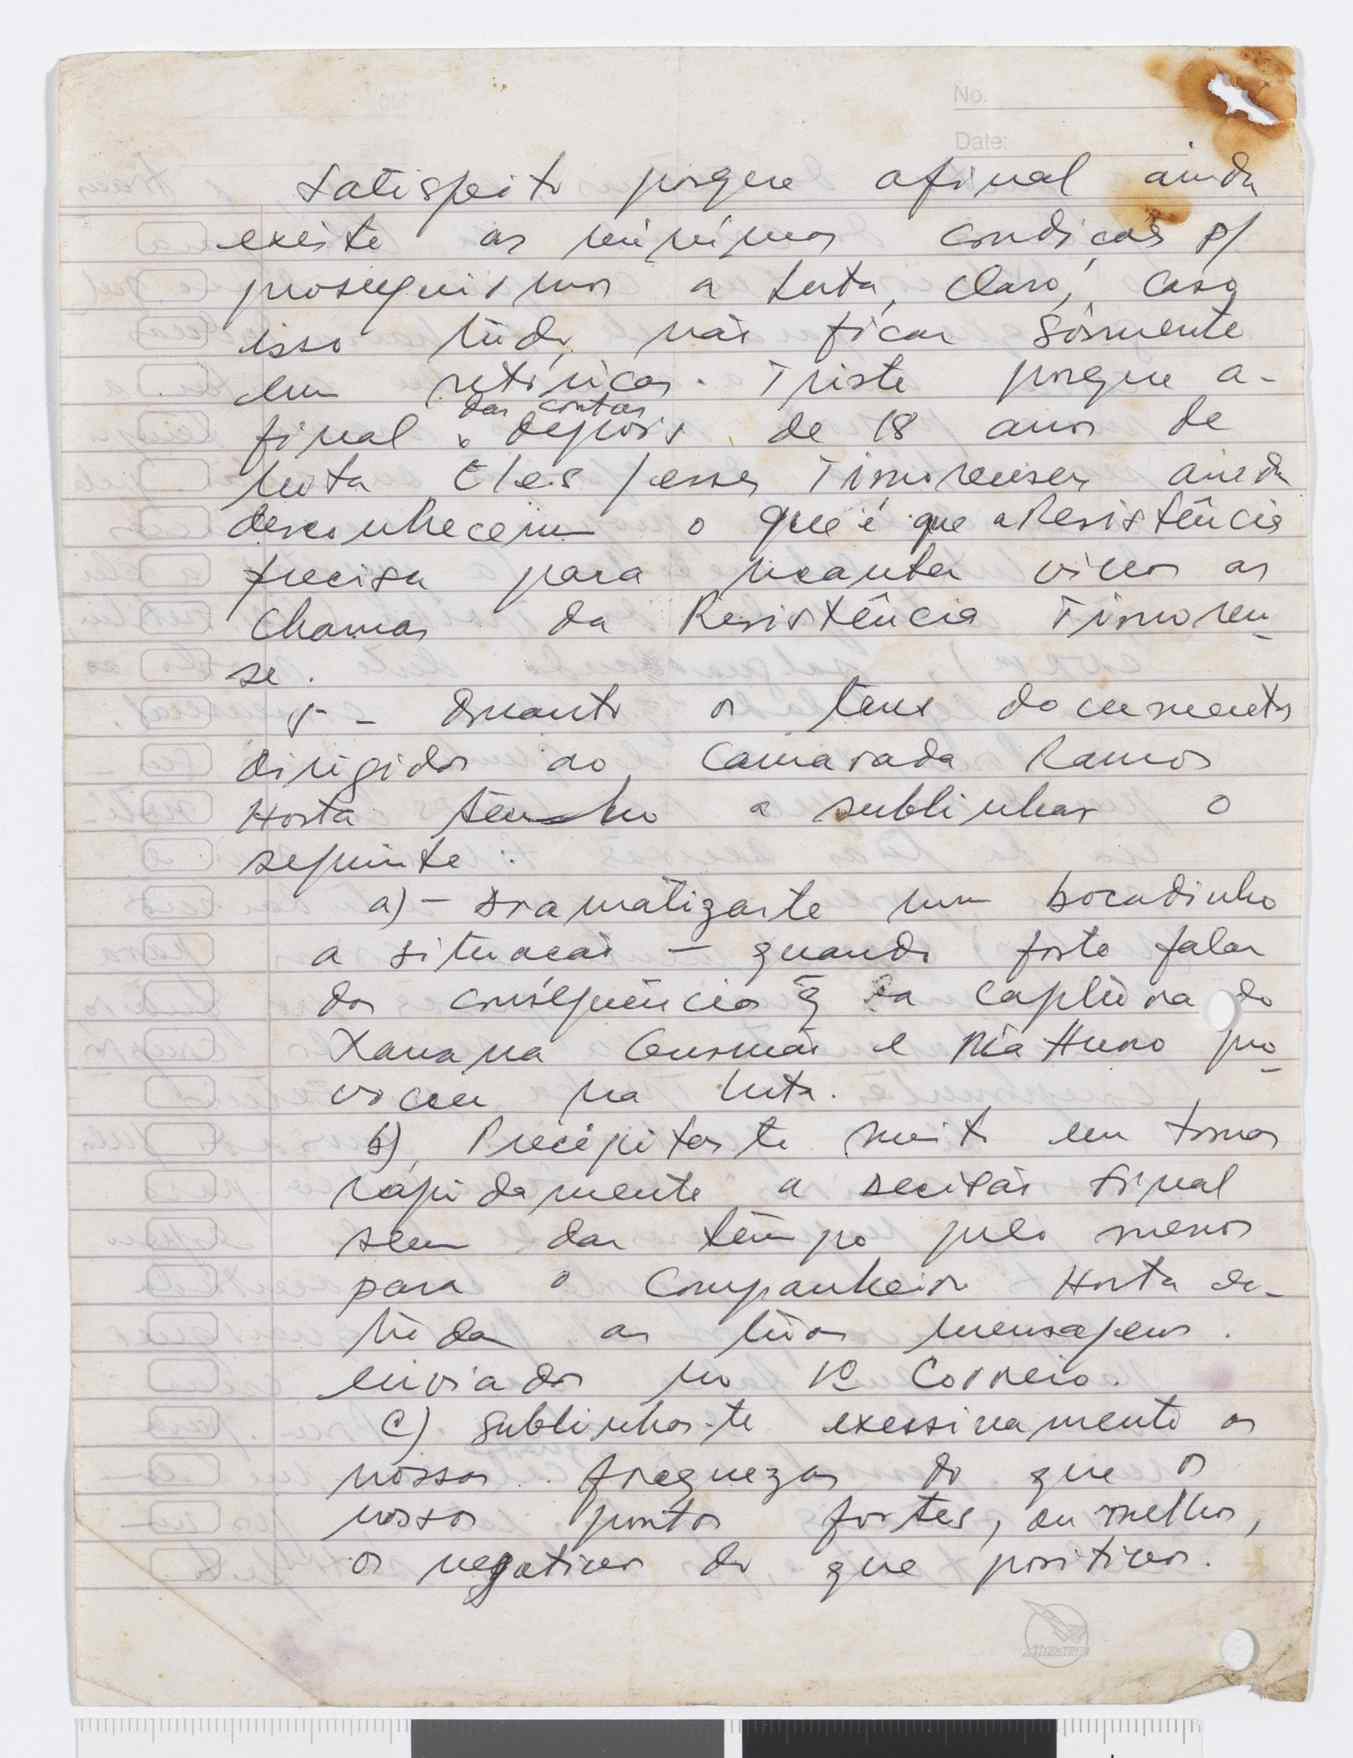 No.
Date:
Satisfeito porque afinal ainda
existe as mínimas condições p/
proseguirmos a luta, claro, caso
isso tudo, não ficar sómente
em retóricas. Triste porque a-
final das contas depois de 18 anos de
luta Eles/esses Timorenses ainda
desconhecem o que é que a Resistência
precisa para manter vivos as
Chamas da Resistência Timoren-
se.
- Quanto os teus documentos
dirigidos ao Camarada Ramos
Horta tenho a sublinhar o
seguinte:
a) - Dramatizaste um bocadinho
a situacão - quando foste falar
das conséquências q̃ a captura do
Xanana Gusmão e Ma Huno pro-
vocou na luta.
b) Precipitaste muito em tomar
rapidamente a decisão final
sem dar tempo pelo menos
para o Companheiro Horta
as túas mensagens.
enviados no 1º Correio.
c) Sublinhas-te exessivamente as
nossas fraquezas do que os
nossos pontos fortes, ou melhor,
os negativos do que positivos.